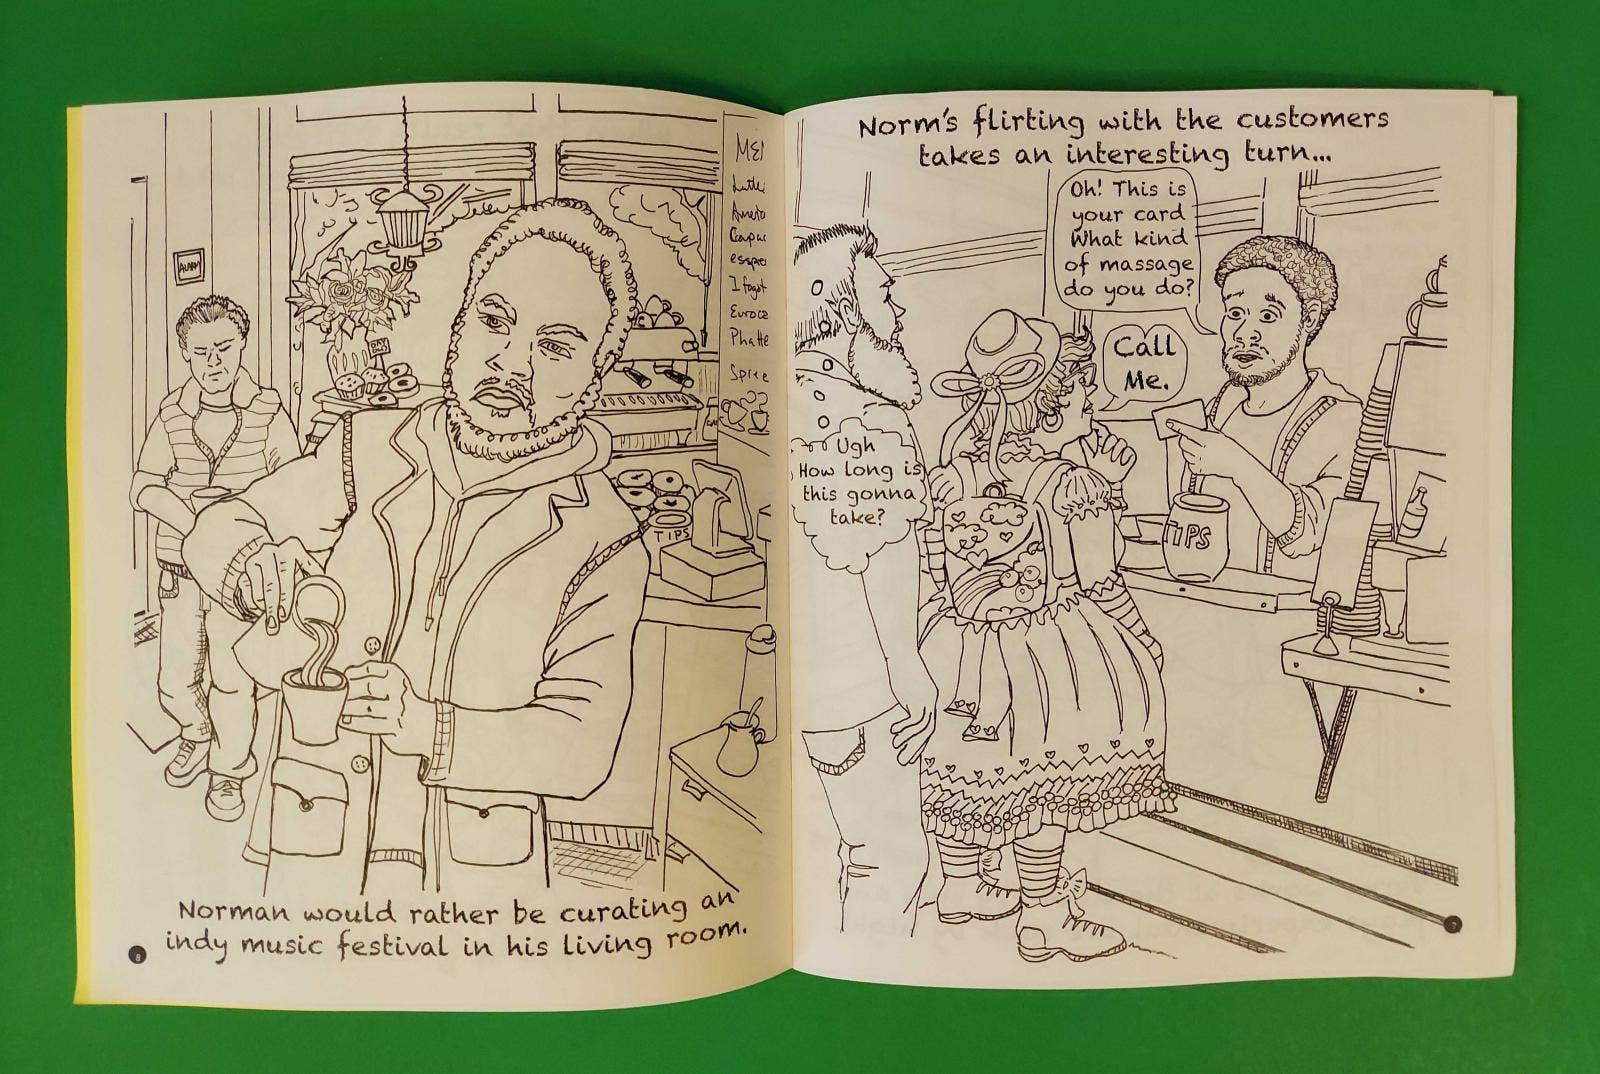 ALARM
DAY
OLD
TIPS
Norman would rather be curating an
indy music festival in his living room.
8
Norm's flirting with the customers
takes an interesting turn...
Oh! This is
your card
What kind
of massage
do you do?
Call
Me.
Ugh
How long is
this gonna
take?
TIPS